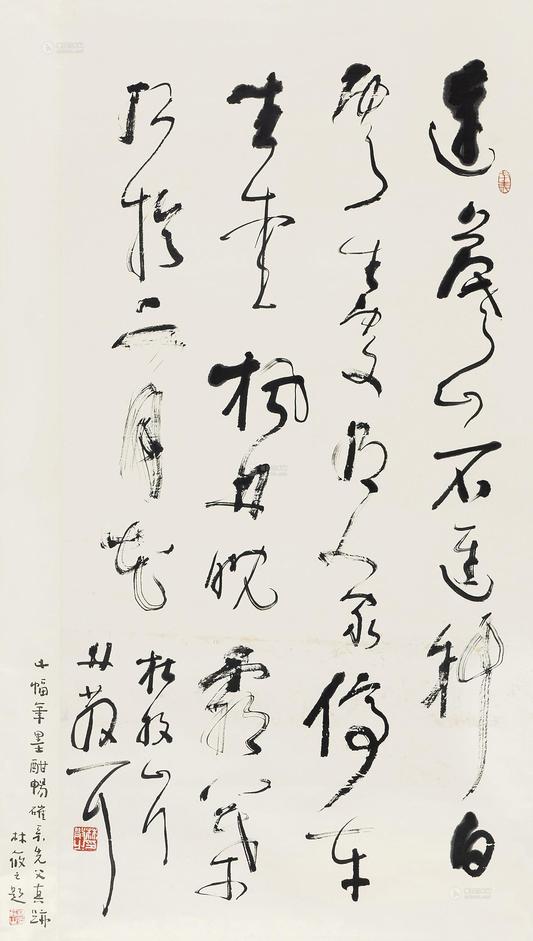 遠上寒山石徑斜白
雲生處有人家停車
坐愛楓林晚霜葉
紅於二月花
杜牧山行
林散耳
此幅筆墨酣暢確系先父真跡
林筱之題